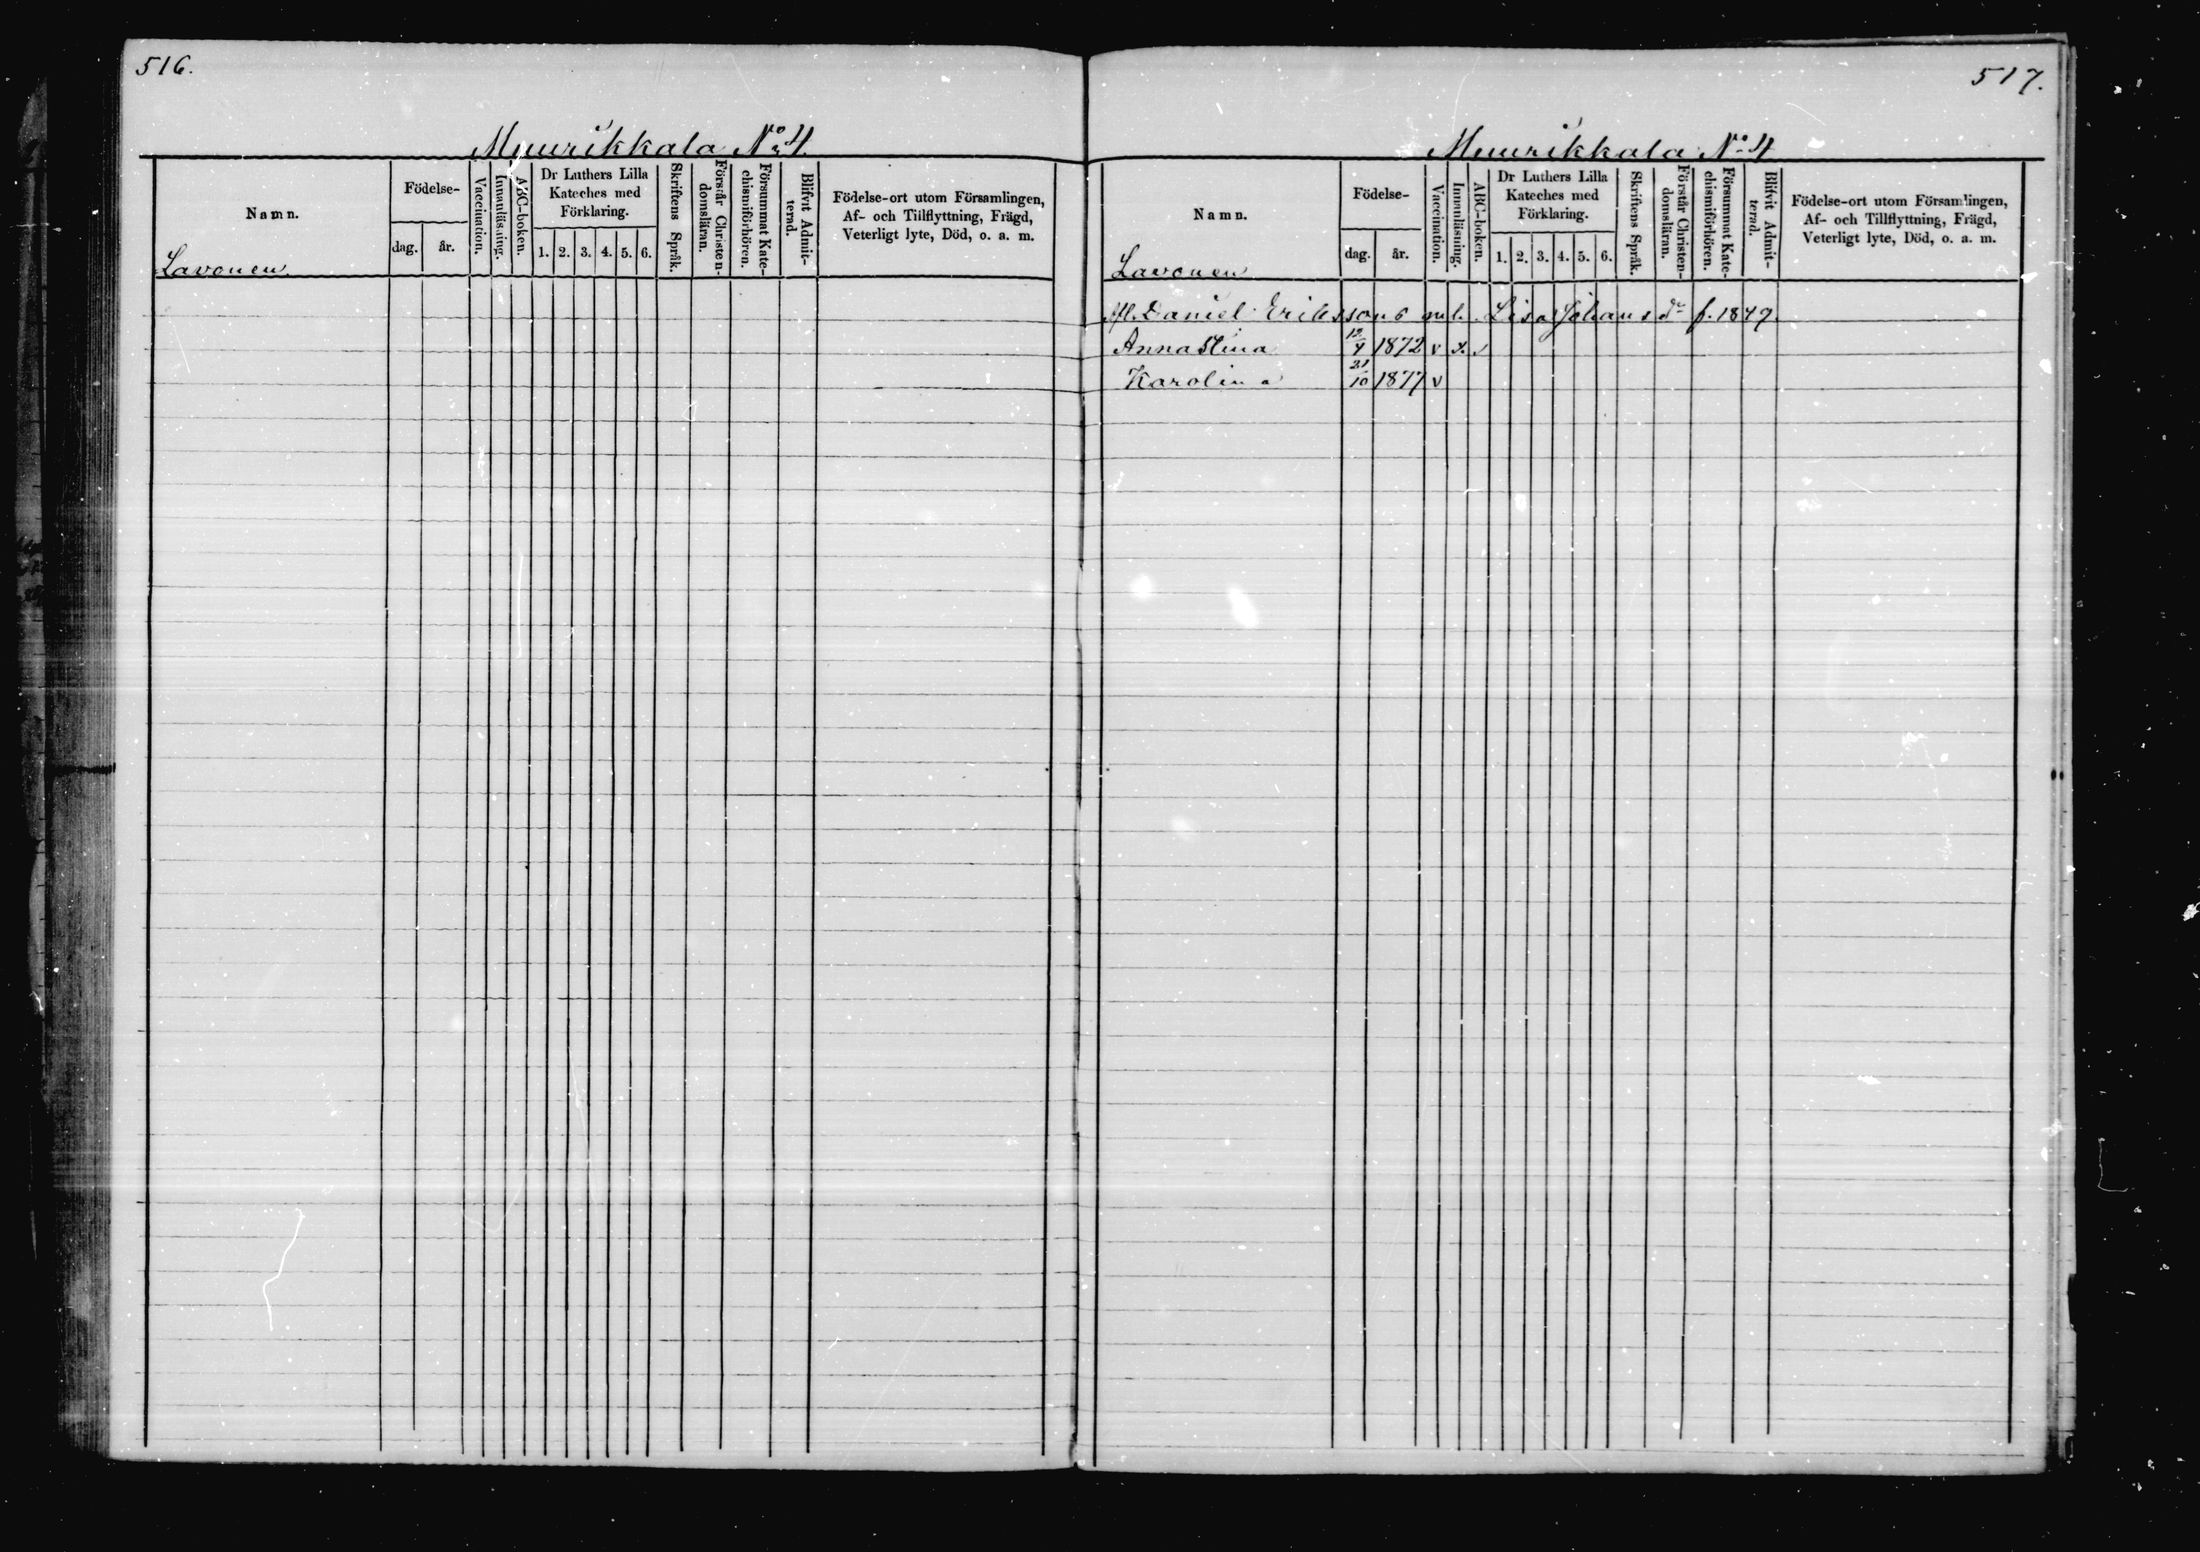 516.
Muurikkala No 4.
Namn.
Födelse-
dag. år.
Vaccination.
Innanläsning.
ABC-boken.
Dr Luthers Lilla
Kateches med
Förklaring.
1. 2. 3. 4. 5. 6.
Skriftens Språk.
Förstår Christen-
domsläran.
Försummat Kate-
chismiförhören.
Blifvit Admit-
terad.
Födelse-ort utom Församlingen,
Af- och Tillflyttning, Frägd,
Veterligt lyte, Död, o. a. m.
Lavonen
517.
Muurikkala No 4
Namn.
Födelse-
dag. år.
Vaccination.
Innanläsning.
ABC-boken.
Dr Luthers Lilla
Kateches med
Förklaring.
1. 2. 3. 4. 5. 6.
Skriftens Språk.
Förstår Christen-
domsläran.
Försummat Kate-
chismiförhören.
Blifvit Admit-
terad.
Födelse-ort utom Församlingen,
Af- och Tillflyttning, Frägd,
Veterligt lyte, Död, o. a. m.
Lavonen
Daniel Erikssons Lisa Johans dr f. 1849.
Anna Stina 12/4 1872 v x
Karolina 21/10 1877 v